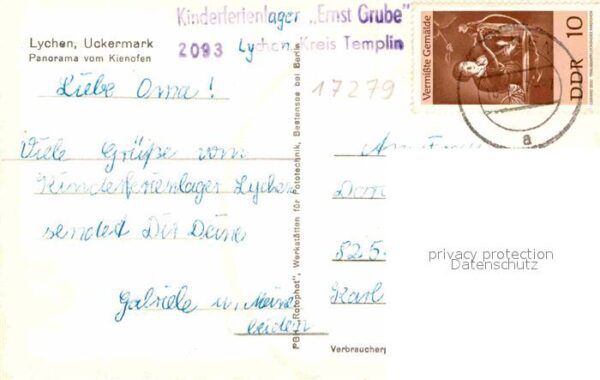 Kinderferienlager „Ernst Grube"
2093 Lychen, Kreis Templin
Lychen, Uckermark
Panorama vom Kienofen
17279
Liebe Oma!
Viele Grüße vom
Kinderferienlager Lychen
sendet Dir Deine
Gabriele u. Meine
beiden
PGH „Rotophot", Werkstätten für Fototechnik, Bestensee bei Berlin
Vermißte Gemälde
DDR 10
a
An
825
Karl
privacy protection
Datenschutz